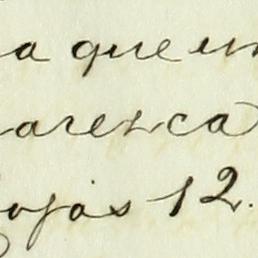 a que un
aresca
ojas 12.